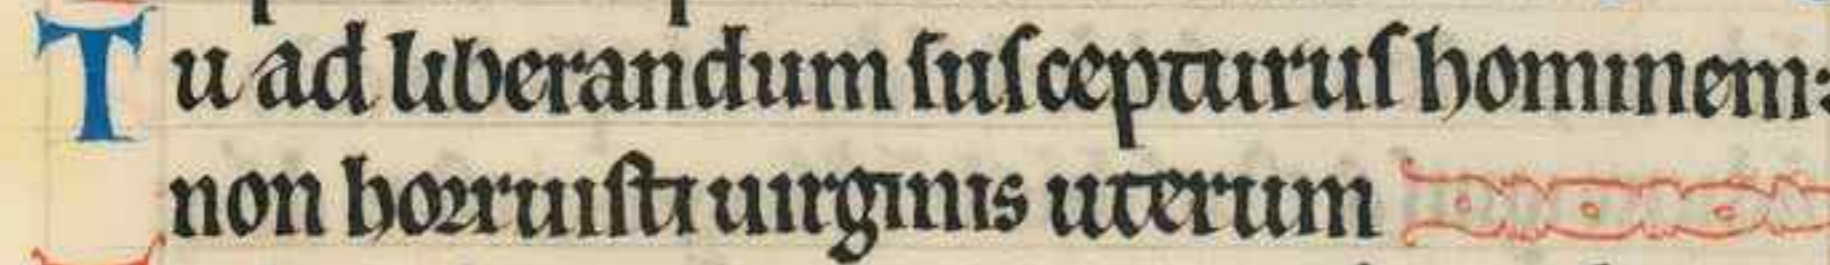 Tu ad liberandum ſuſcepturuſ hominem:
non horruiſti uirginis uterum